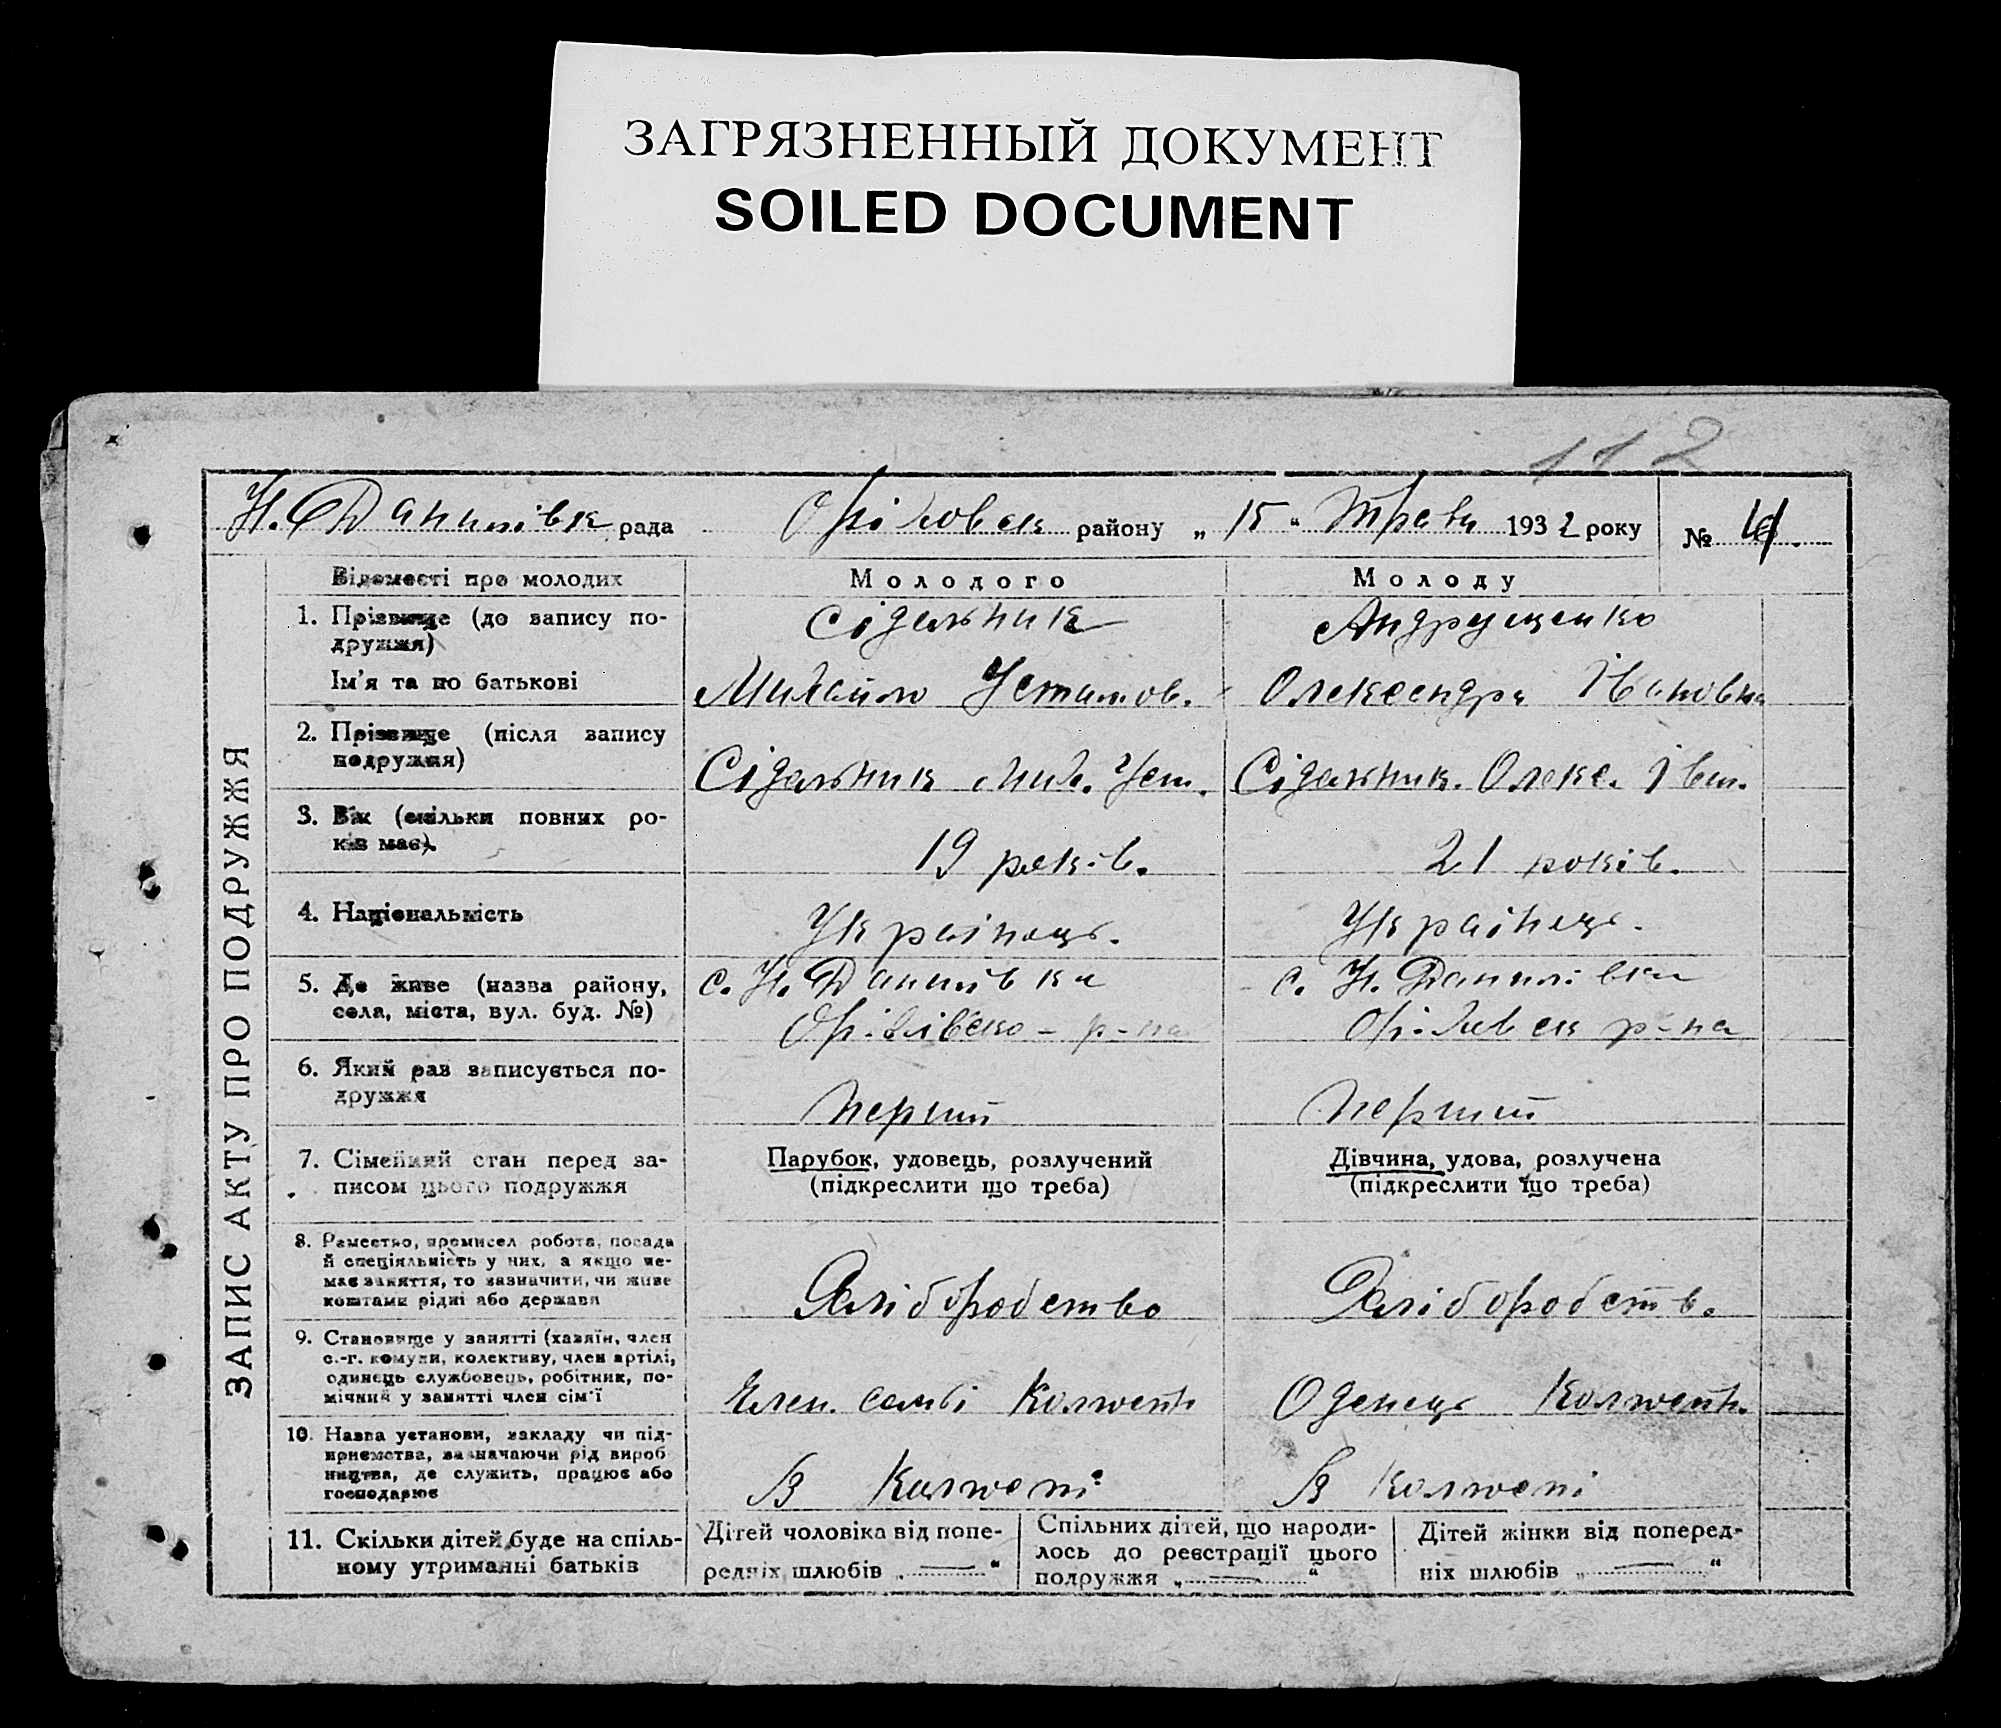 ЗАГРЯЗНЕННЫЙ ДОКУМЕНТ
SOILED DOCUMENT
112
Н. Данилівк рада Оріховск району „ 15 “ Трав 1932 року № 4.
ЗАПИС АКТУ ПРО ПОДРУЖЖЯ
Відомості про молодих Молодого Молоду
1. Прізвище (до запису по-
дружжя)
Сідельник Андрущенко
Ім'я та по батькові Михайло Устимов. Олександра Івановна
2. Прізвище (після запису
подружжя)
Сідельник Мих. Уст. Сідельник. Олекс. Іван.
3. Вік (скільки повних ро-
ків має).
19 років. 21 років.
4. Національність Українець. Українець.
5. Де живе (назва району,
села, міста, вул. буд. №)
с. Н. Данилівка с. Н. Данилівка
р-на р-на
6. Який раз записується по-
дружжя
перший перший
7. Сімейний стан перед за-
писом цього подружжя
Парубок, удовець, розлучений
(підкреслити що треба)
Дівчина, удова, розлучена
(підкреслити що треба)
8. Рамество, промисел робота, посада
й спеціяльність у них, а якщо не-
має заняття, то зазначити, чи живе
коштами рідні або держави
Хліборобство Хліборобство
9. Становище у занятті (хазяїн, член
с.-г. комуни, колективу, член артілі,
одинець службовець, робітник, по-
мічний у занятті член сім'ї
Член семі Оденець
10. Назва установи, закладу чи під-
приємства, зазначаючи рід вироб
ництва, де служить, працює або
господарює
В В
11. Скільки дітей буде на спіль-
ному утриманні батьків
Дітей чоловіка від попе-
редніх шлюбів „ — “
Спільних дітей, що народи-
лось до реєстрації цього
подружжя „ — “
Дітей жінки від поперед-
ніх шлюбів „ — “